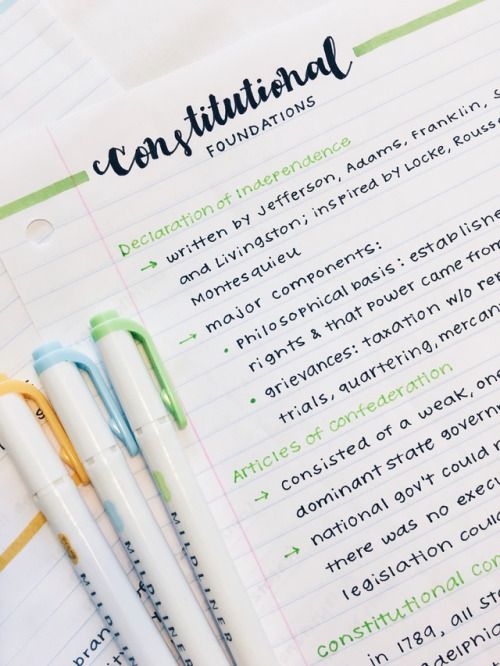 Constitutional
FOUNDATIONS
Declaration of Independence
→ written by Jefferson, Adams, Franklin, S
and Livingston; inspired by Locke, Rouss
Montesquieu
→ major components:
• Philosophical basis: establishe
rights & that power came from
• grievances: taxation w/o re
trials, quartering, mercan
Articles of Confederation
→ consisted of a weak, one
dominant state govern
→ national gov't could n
there was no execu
legislation coul
constitutional con
in 1789, all sta
delphia
MILDLINER
MILDLINER
MILDLINER
bran